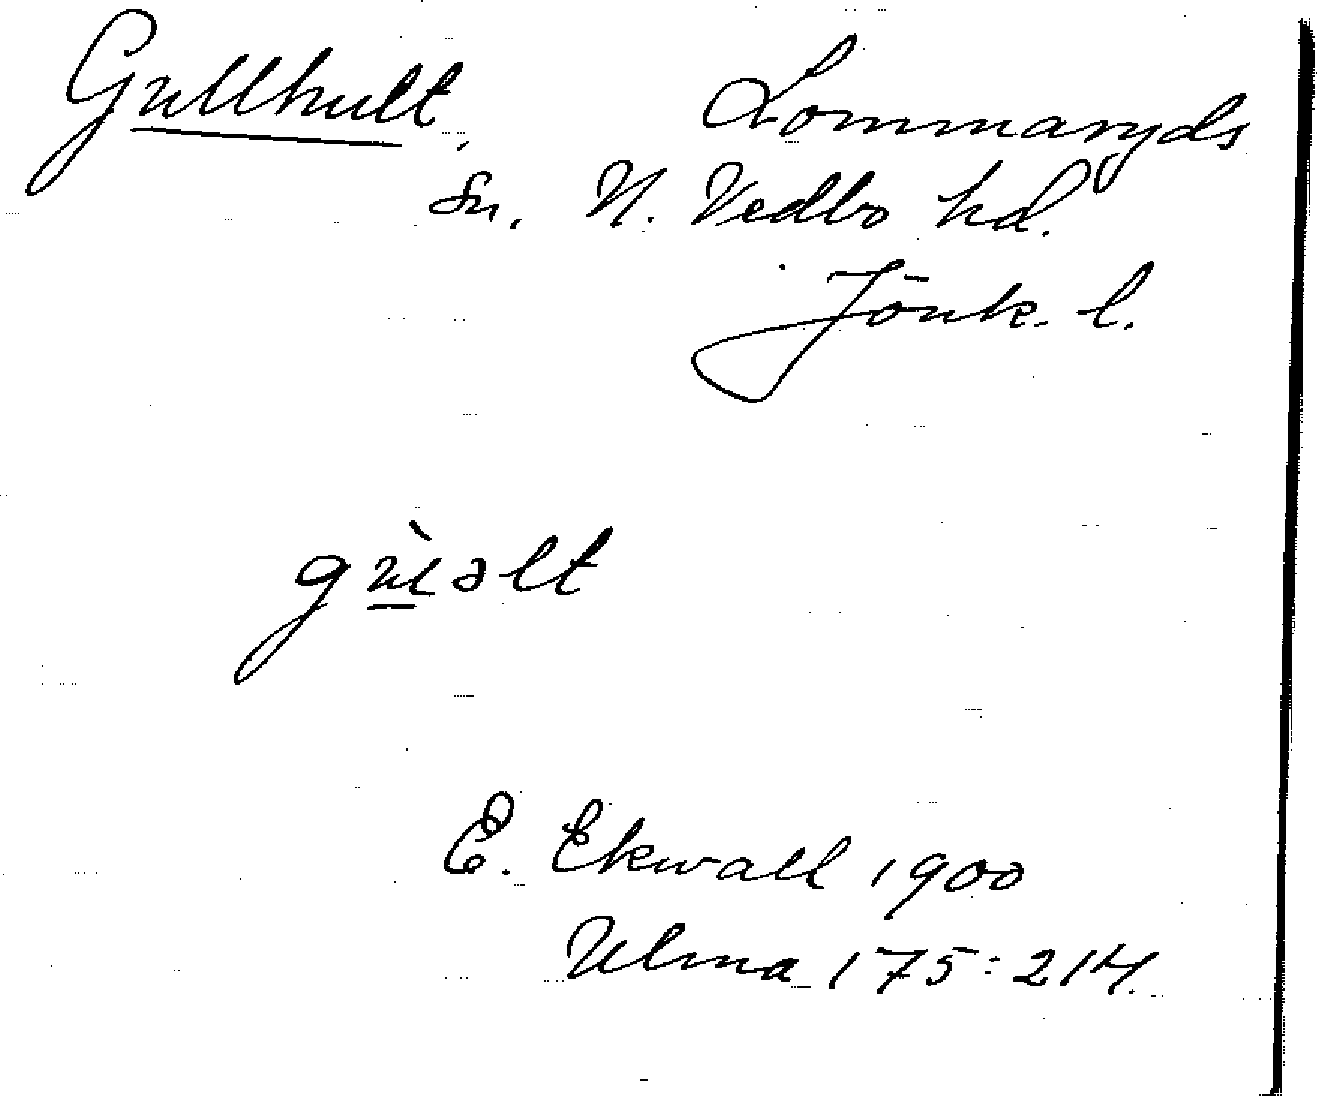 Gullhult, Lommaryds
sn. N. Vedbo hd.
Jönk. l.
gùləlt
E. Ekwall 1900
Ulma 175:214.